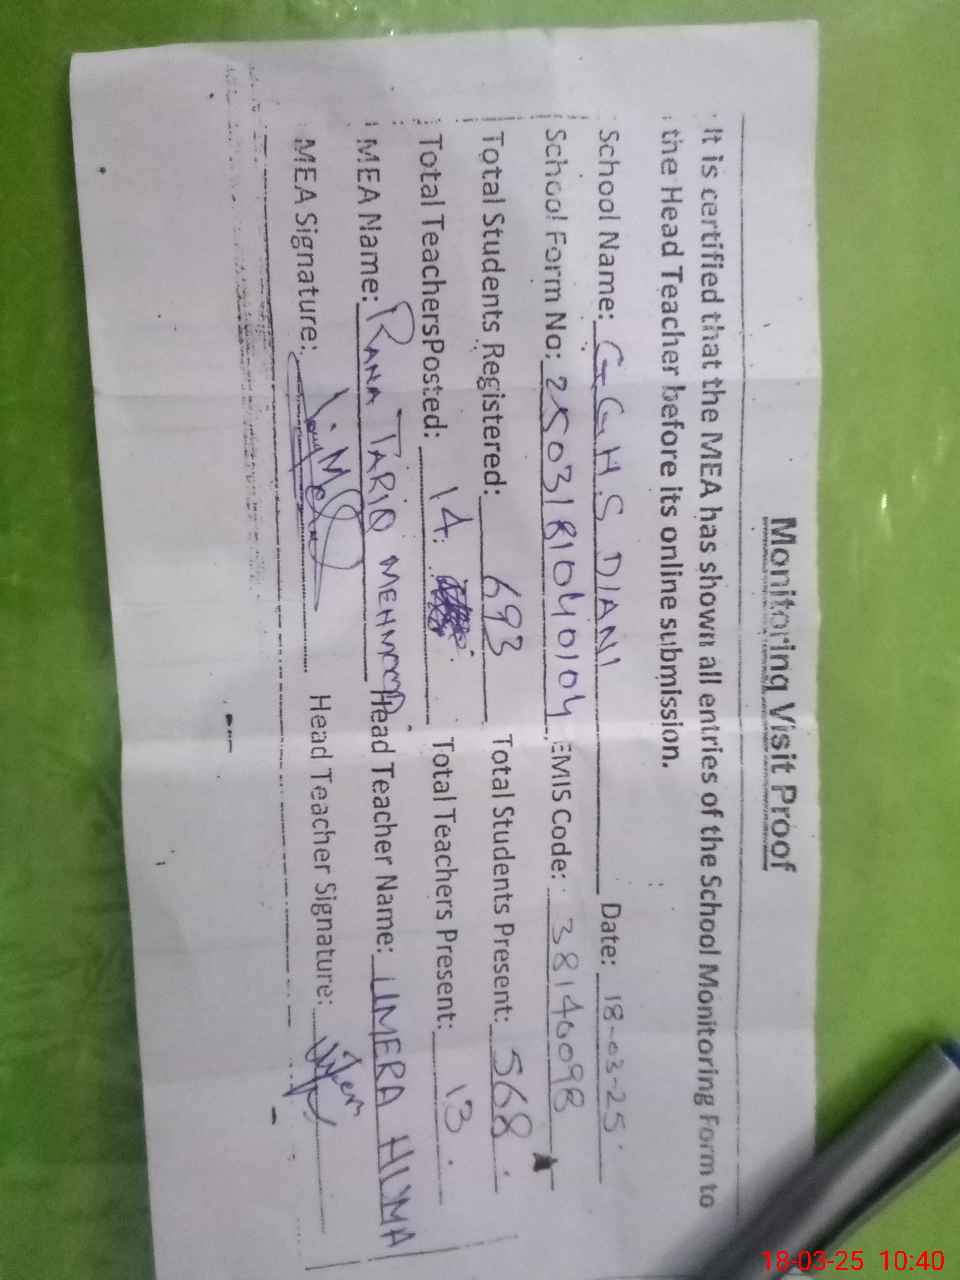 Monitoring Visit Proof
It is certified that the MEA has shown all entries of the School Monitoring Form to
the Head Teacher before its online submission.
School Name: G.G.H.S DIANI Date: 18-03-25
School Form No: 2503181040104 EMIS Code: 38140098
Total Students Registered: 693 Total Students Present: 568
Total TeachersPosted: 14 Total Teachers Present: 13
MEA Name: RANA TARIQ MEHMOOD Head Teacher Name: UMERA HUMA
MEA Signature: Head Teacher Signature:
18-03-25 10:40